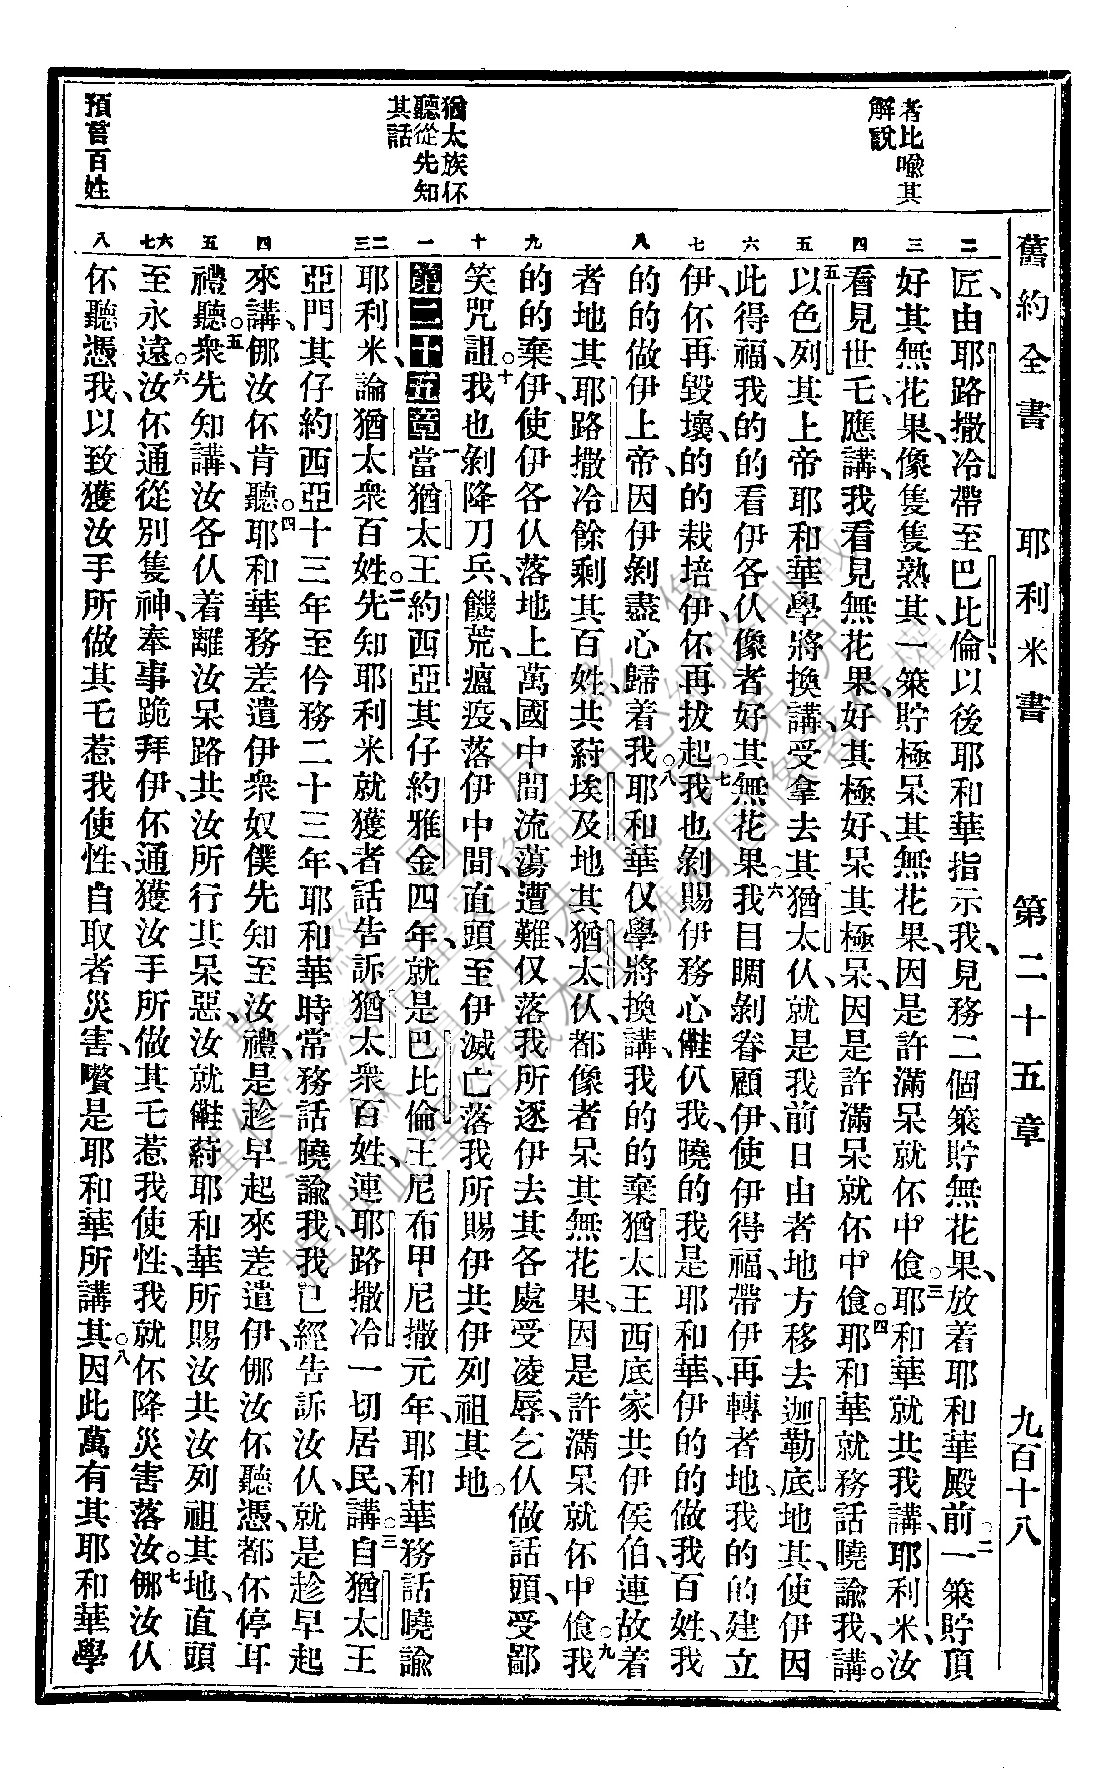 舊約全書 耶利米書 第二十五章 九百十八
者比喩其
解說
猶太族伓
聽從先知
其話
預言百姓
二 三 四 五 六 七 八 九 十 一 二 三 四 五 六 七 八
匠、由耶路撒冷帶至巴比倫、以後耶和華指示我、見務二個䇲貯無花果、放着耶和華殿前。二一䇲貯頂
好其無花果、像隻隻熟其、一䇲貯極呆其無花果、因是許滿呆就伓中飡。三耶和華就共我講、耶利米、汝
看見世乇、應講、我看見無花果、好其極好、呆其極呆、因是許滿呆就伓中飡。四耶和華就務話曉諭我、講。
五以色列其上帝耶和華學將換講、受拿去其猶太仈、就是我前日由者地方移去迦勒底地其、使伊因
此得福、我的的看伊各仈像者好其無花果。六我目睭剝眷顧伊、使伊得福、帶伊再轉者地、我的的建立
伊、伓再毀壞、的的栽培伊、伓再拔起。七我也剝賜伊務心、㑚仈我、曉的我是耶和華、伊的的做我百姓、我
的的做伊上帝、因伊剝盡心歸着我。八耶和華仅學將換講、我的的棄猶太王西底家共伊侯伯、連故着
者地其耶路撒冷餘剩其百姓、共蒔埃及地其猶太仈、都像者呆其無花果、因是許滿呆就伓中飡。九我
的的棄伊、使伊各仈落地上萬國中間流蕩遭難、仅落我所逐伊去其各處受凌辱、乞仈做話頭、受鄙
笑咒詛。十我也剝降刀兵、饑荒、瘟疫、落伊中間、直頭至伊滅亡落我所賜伊共伊列祖其地。
第二十五章 一當猶太王約西亞其仔約雅金四年、就是巴比倫王尼布甲尼撒元年、耶和華務話曉諭
耶利米、論猶太衆百姓。二先知耶利米就獲者話告訴猶太衆百姓、連耶路撒冷一切居民、講。三自猶太王
亞門其仔約西亞十三年、至伶務二十三年、耶和華時常務話曉諭我、我已經告訴汝仈、就是趁早起
來講、㑚汝伓肯聽。四耶和華務差遣伊衆奴僕先知至汝禮、是趁早起來差遣伊、㑚汝伓聽憑、都伓停耳
禮聽。五衆先知講、汝各仈着離汝呆路共汝所行其呆惡、汝就㑚蒔耶和華所賜汝共汝列祖其地、直頭
至永遠。六汝伓通從別隻神、奉事跪拜伊、伓通獲汝手所做其乇惹我使性、我就伓降災害落汝。七㑚汝仈
伓聽憑我、以致獲汝手所做其乇惹我使性、自取者災害、嚽是耶和華所講其。八因此萬有其耶和華學